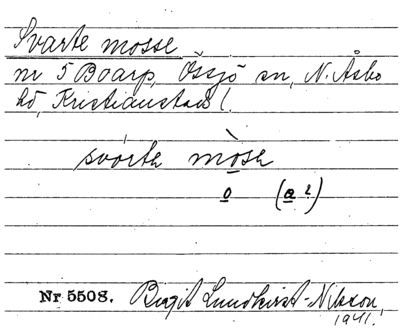 Svarte mosse
nr 5 Boarp, Össjö sn, N. Åsbo
hd, Kristianstads l.
svárte mòse
o (a?)
Nr 5508. Birgit Lundkvist-Nilsson,
1941.